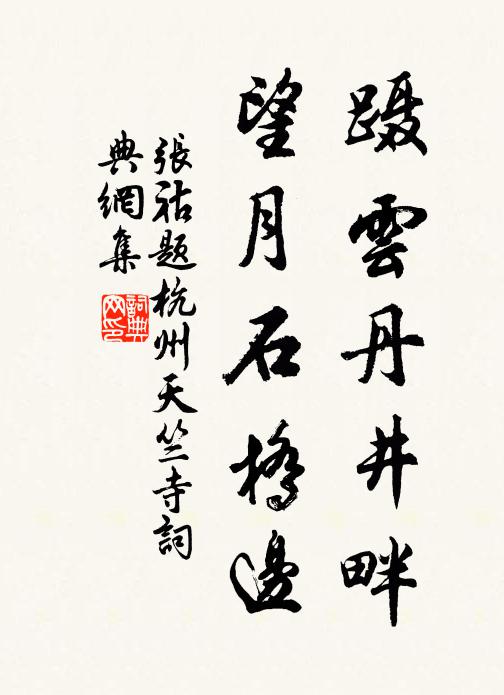 蹑雲丹井畔
望月石橋邊
張祜題杭州天竺寺詞
典網集
詞典網印